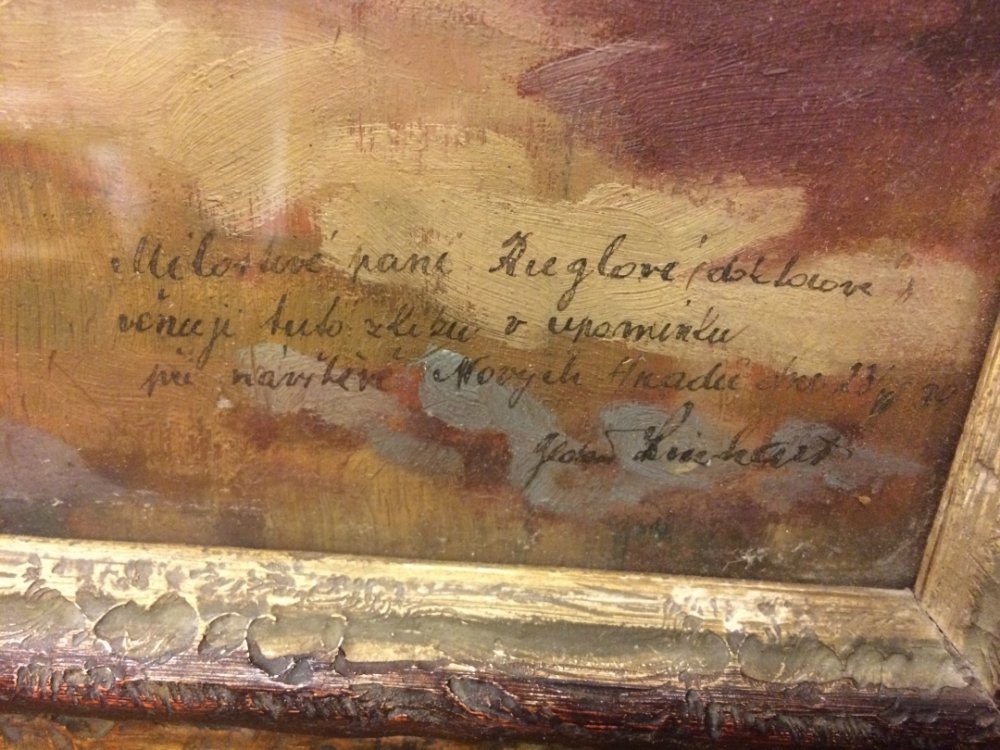 Milostivé paní Rieglové (doktorové)
věnuji tuto skizu v upomínku
při návštěvě Nových Hradů dne 23/
Linhart